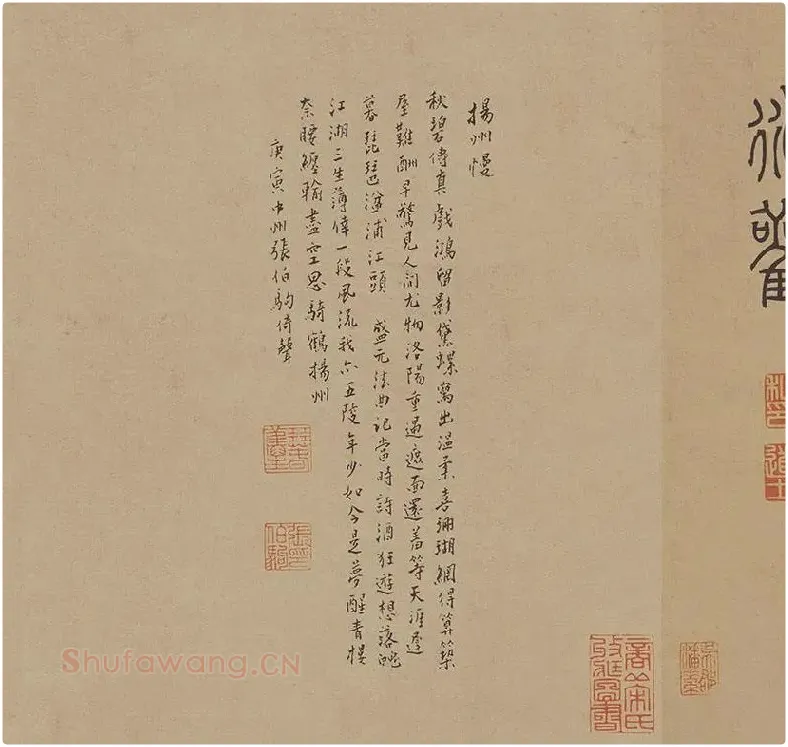 揚州慢
秋碧傳真戲鴻留影黛螺寫出溫柔喜珊瑚網得算築
屋難酬早驚見人間尤物洛陽重遇遮面還羞等天涯遲
暮琵琶湓浦江頭 盛元法曲記當時詩酒狂遊想落魄
江湖三生薄倖一段風流我亦五陵年少如今是夢醒青樓
奈腰纏輸盡空思騎鶴揚州
庚寅中州張伯駒倚聲
Shufawang.CN